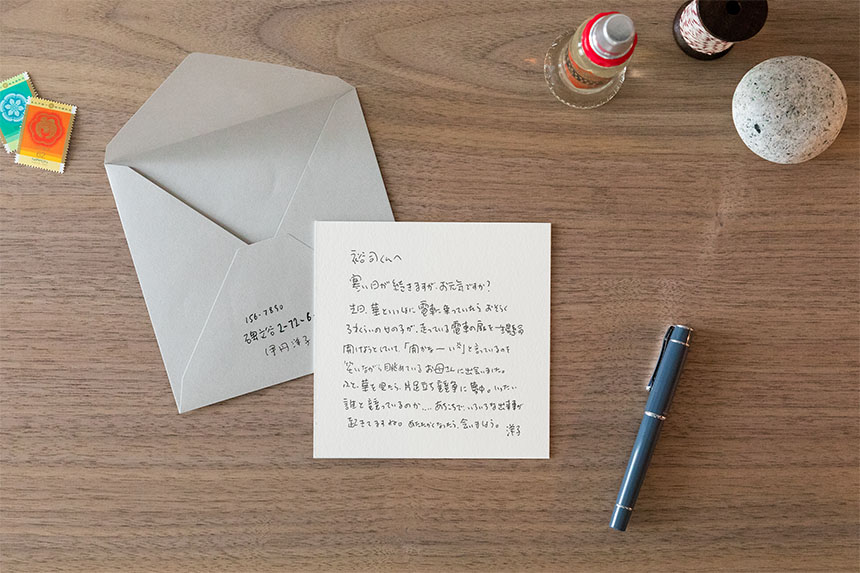 裕司くんへ
寒い日が続きますが、お元気ですか?
先日、華といっしょに電車に乗っていたら、おそらく
3才くらいの女の子が、走っている電車の扉を一生懸命
開けようとしていて、「開かなーい!!」と言っているのを
笑いながら眺めているお母さんに出会いました。
ふと、華を見たら、片足立ち競争に夢中。いったい
誰と競っているのか‥‥ あちこちで、いろいろな出来事が
起きてますね。あたたかくなったら、会いましょう。洋子
156-7890
2-72-6
伊丹洋子